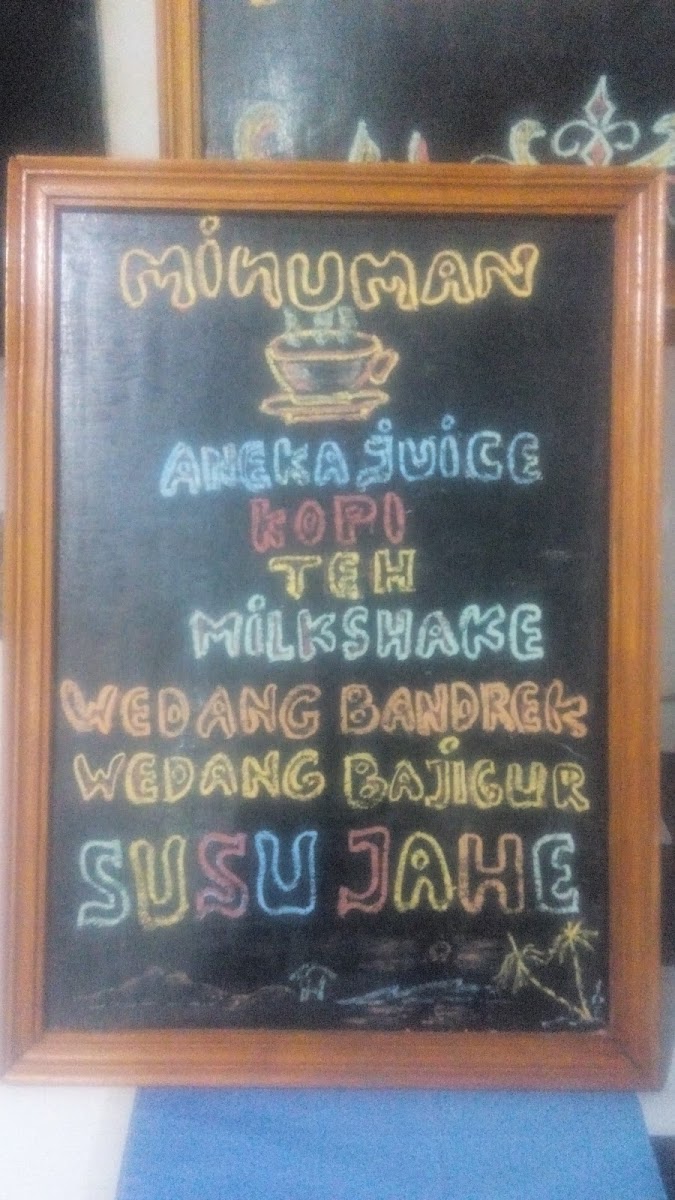 MiNUMAN
ANEKA jUiCE
KOPI
TEH
MiLKSHAKE
WEDANG BANDREK
WEDANG BAjiGUR
SUSU JAHE